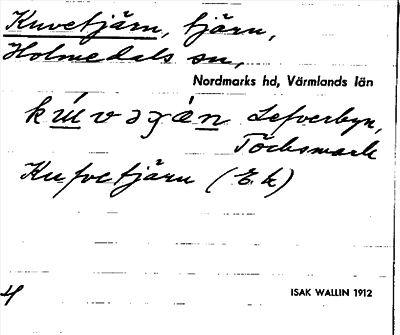 Kuvetjärn, tjärn,
Holmedals sn,
Nordmarks hd, Värmlands län
Lefverbyn,
Töcksmark
Kufvetjärn (Ek)
4
ISAK WALLIN 1912